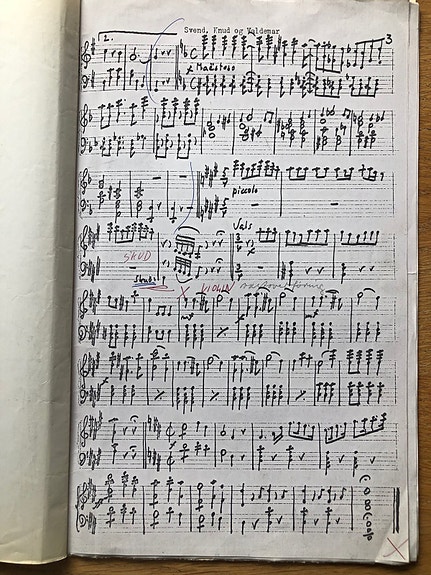 Svend, Knud og Valdemar
3
2.
Maestoso
piccolo
Vals
SKUD
Skud
X VIOLIN
mf
mf mf
X